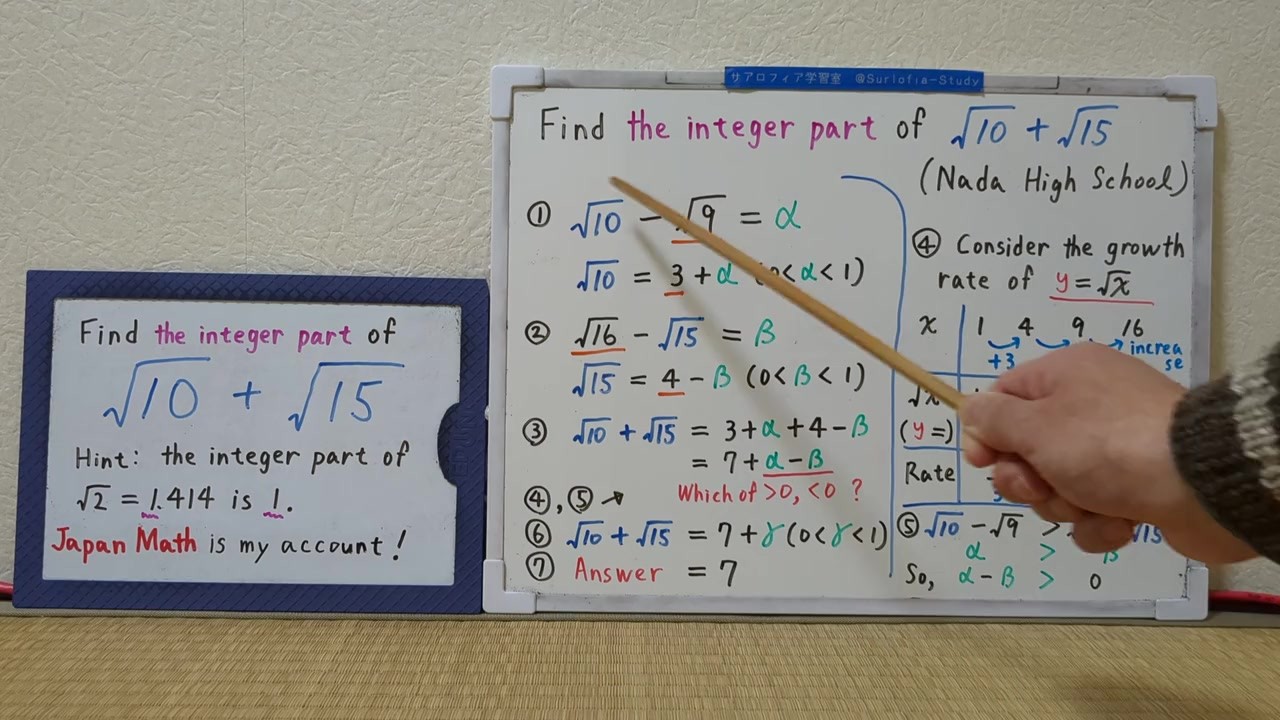 Find the integer part of
√10 + √15
Hint: the integer part of
√2 = 1.414 is 1.
Japan Math is my account!
サアロフィア学習室 @Surlofia-Study
Find the integer part of √10 + √15
(Nada High School)
① √10 − √9 = α
√10 = 3 + α (0 < α < 1)
② √16 − √15 = β
√15 = 4 − β (0 < β < 1)
③ √10 + √15 = 3 + α + 4 − β
= 7 + α − β
Which of >0, <0 ?
④, ⑤ →
⑥ √10 + √15 = 7 + γ (0 < γ < 1)
⑦ Answer = 7
④ Consider the growth
rate of y = √x
x 1 4 9 16
+3 increa
se
√x
(y =)
Rate
⑤ √10 − √9 > √15
α > β
So, α − β > 0